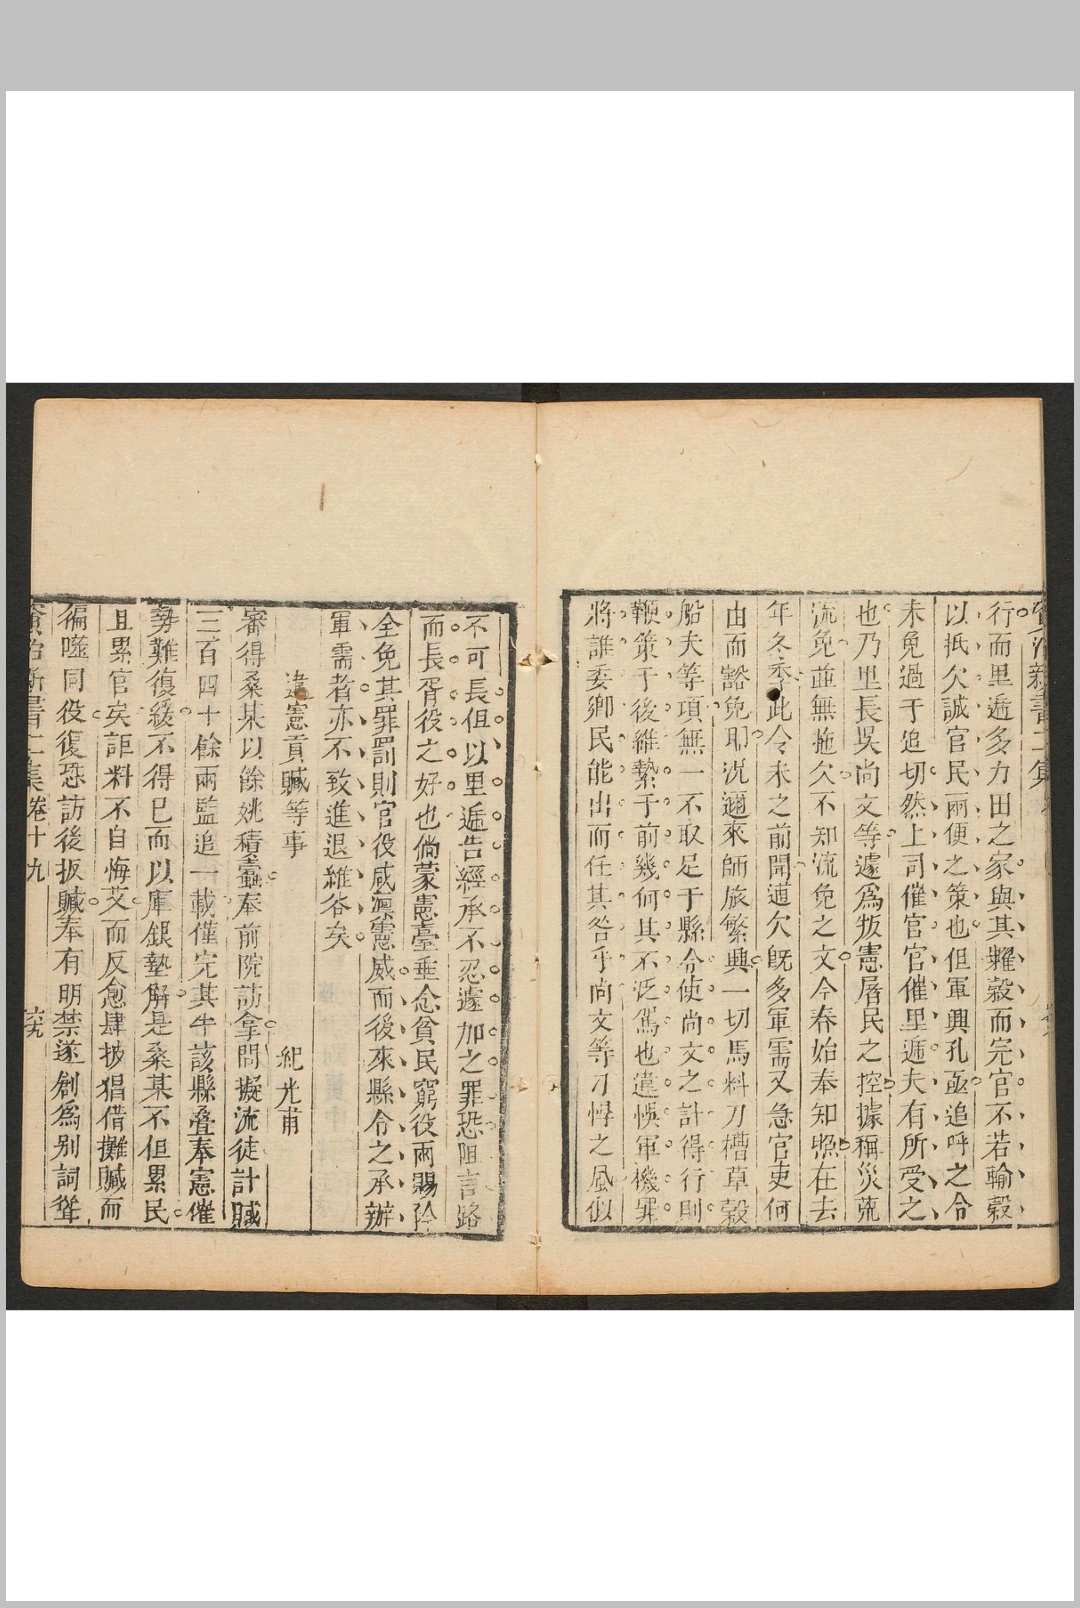 資治新書二集
行而里遞多力田之家與其糶穀而完官不若輸穀
以抵欠誠官民兩便之策也但軍興孔亟追呼之令
未免過于追切然上司催官官催里遞夫有所受之
也乃里長吳尚文等遽為叛憲屠民之控據稱災荒
流免並無拖欠不知流免之文今春始奉知照在去
年冬季此令未之前聞逋欠既多軍需又急官吏何
由而豁免耶況邇來師旅繁興一切馬料刀槽草穀
船夫等項無一不取足于縣令使尚文之計得行則
鞭策于後維縶于前幾何其不泛駕也違悞軍機罪
將誰委鄉民能出而任其咎乎尚文等刁悍之風似
不可長但以里遞告經承不忍遽加之罪恐阻言路
而長胥役之好也倘蒙憲臺垂念貧民窮役兩賜矜
全免其罪罰則官役咸凜憲威而後來縣令之承辦
軍需者亦不致進退維谷矣
違憲貢贓等事 紀光甫
審得桑某以餘姚積蠹奉前院訪拿問擬流徒計贓
三百四十餘兩監追一載僅完其半該縣疊奉憲催
勢難復緩不得已而以庫銀墊解是桑某不但累民
且累官矣詎料不自悔艾而反愈肆披猖借攤贓而
徧噬同役復恐訪後扳贓奉有明禁遂創為別詞聳
資治新書二集卷十九 六九